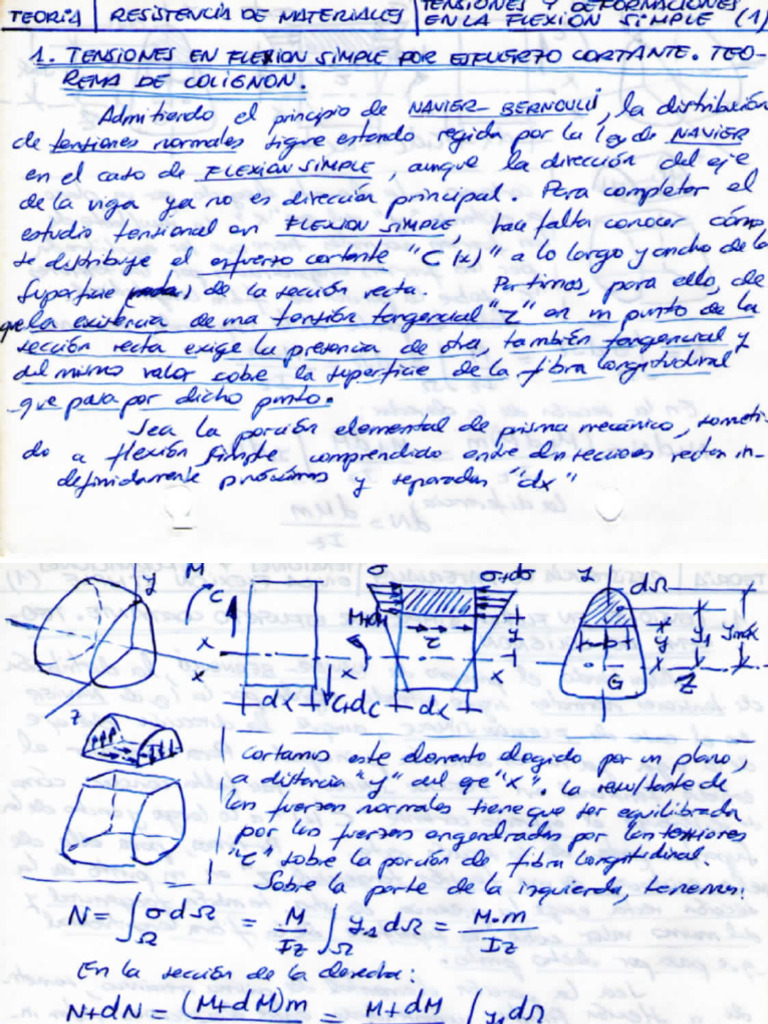 TEORIA | RESISTENCIA DE MATERIALES | TENSIONES Y DEFORMACIONES EN LA FLEXIÓN SIMPLE (1)
1. TENSIONES EN FLEXION SIMPLE POR ESFUERZO CORTANTE. TEO-
REMA DE COLIGNON.
Admitiendo el principio de NAVIER-BERNOULLI, la distribución
de tensiones normales sigue estando regida por la ley de NAVIER
en el caso de FLEXION SIMPLE, aunque la dirección del eje
de la viga ya no es dirección principal. Para completar el
estudio tensional en FLEXION SIMPLE, hace falta conocer cómo
se distribuye el esfuerzo cortante "C (x)" a lo largo y ancho de la
superficie de la sección recta. Partimos, para ello, de
que la existencia de una tensión tangencial "τ" en un punto de la
sección recta exige la presencia de otra, también tangencial y
del mismo valor sobre la superficie de la fibra longitudinal
que pasa por dicho punto.
Sea la porción elemental de prisma mecánico, someti-
do a flexión simple comprendido entre dos secciones rectas in-
definidamente próximas y separadas "dx"
y M C x x M+dM σ σ+dσ τ y x y dΩ
y y₁ ymáx
z dx C+dC dx G z
Cortamos este elemento elegido por un plano,
a distancia "y" del eje "x". La resultante de
las fuerzas normales tiene que ser equilibrada
por las fuerzas engendradas por las tensiones
"τ" sobre la porción de fibra longitudinal.
Sobre la parte de la izquierda, tenemos:
N = ∫Ω σ dΩ = M/Iz ∫Ω y₁ dΩ = M·m/Iz
En la sección de la derecha:
N+dN = (M+dM)m = M+dM ∫ y₁ dΩ